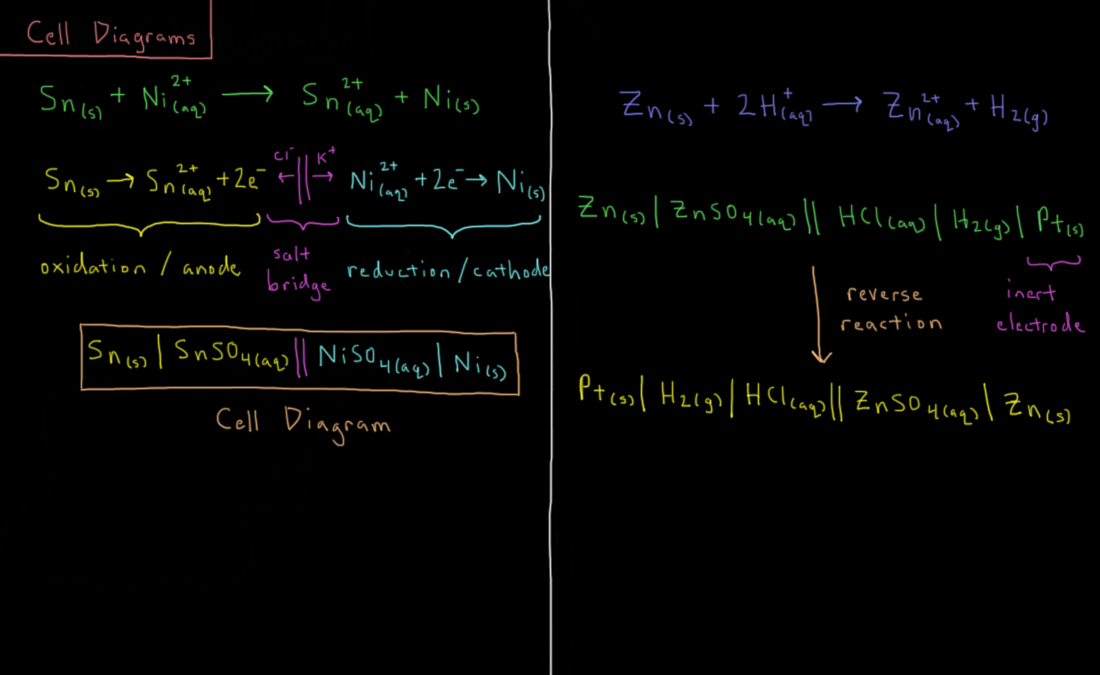 Cell Diagrams
Sn(s) + Ni²⁺(aq) → Sn²⁺(aq) + Ni(s)
Cl⁻ K⁺
Sn(s) → Sn²⁺(aq) + 2e⁻ ←||→ Ni²⁺(aq) + 2e⁻ → Ni(s)
oxidation / anode
salt
bridge
reduction / cathode
Sn(s) | SnSO₄(aq) || NiSO₄(aq) | Ni(s)
Cell Diagram
Zn(s) + 2H⁺(aq) → Zn²⁺(aq) + H₂(g)
Zn(s) | ZnSO₄(aq) || HCl(aq) | H₂(g) | Pt(s)
reverse
reaction
inert
electrode
Pt(s) | H₂(g) | HCl(aq) || ZnSO₄(aq) | Zn(s)